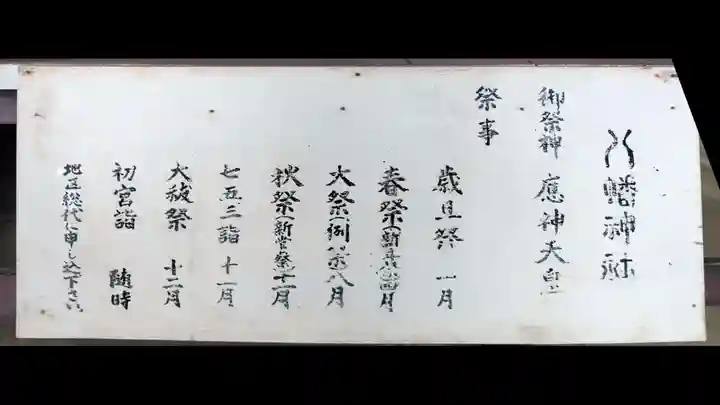 八幡神社
御祭神 應神天皇
祭事
歳旦祭 一月
春祭(祈年祭)四月
大祭(例祭)八月
秋祭(新嘗祭)十一月
七五三詣 十一月
大祓祭 十二月
初宮詣 随時
地区総代に申し込下さい